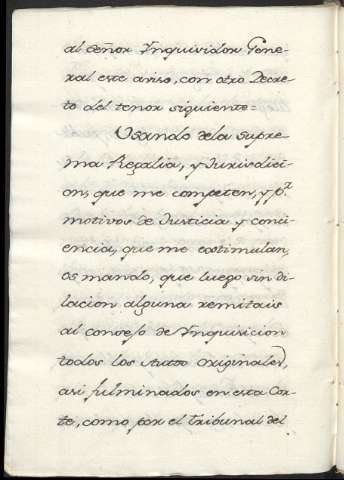 al Señor Ynquisidor Gene-
ral este aviso, con otro Decre-
to del tenor siguiente=
Usando dela supre-
ma Regalia, y Jurisdici-
on, que me competen, y pr.
motivos de Justicia y conci-
encia, que me estimulan,
os mando, que luego sin di-
lacion alguna remitais
al consejo de Ynquisicion
todos los Autos originales,
asi fulminados en esta Cor-
te, como por el Tribunal del